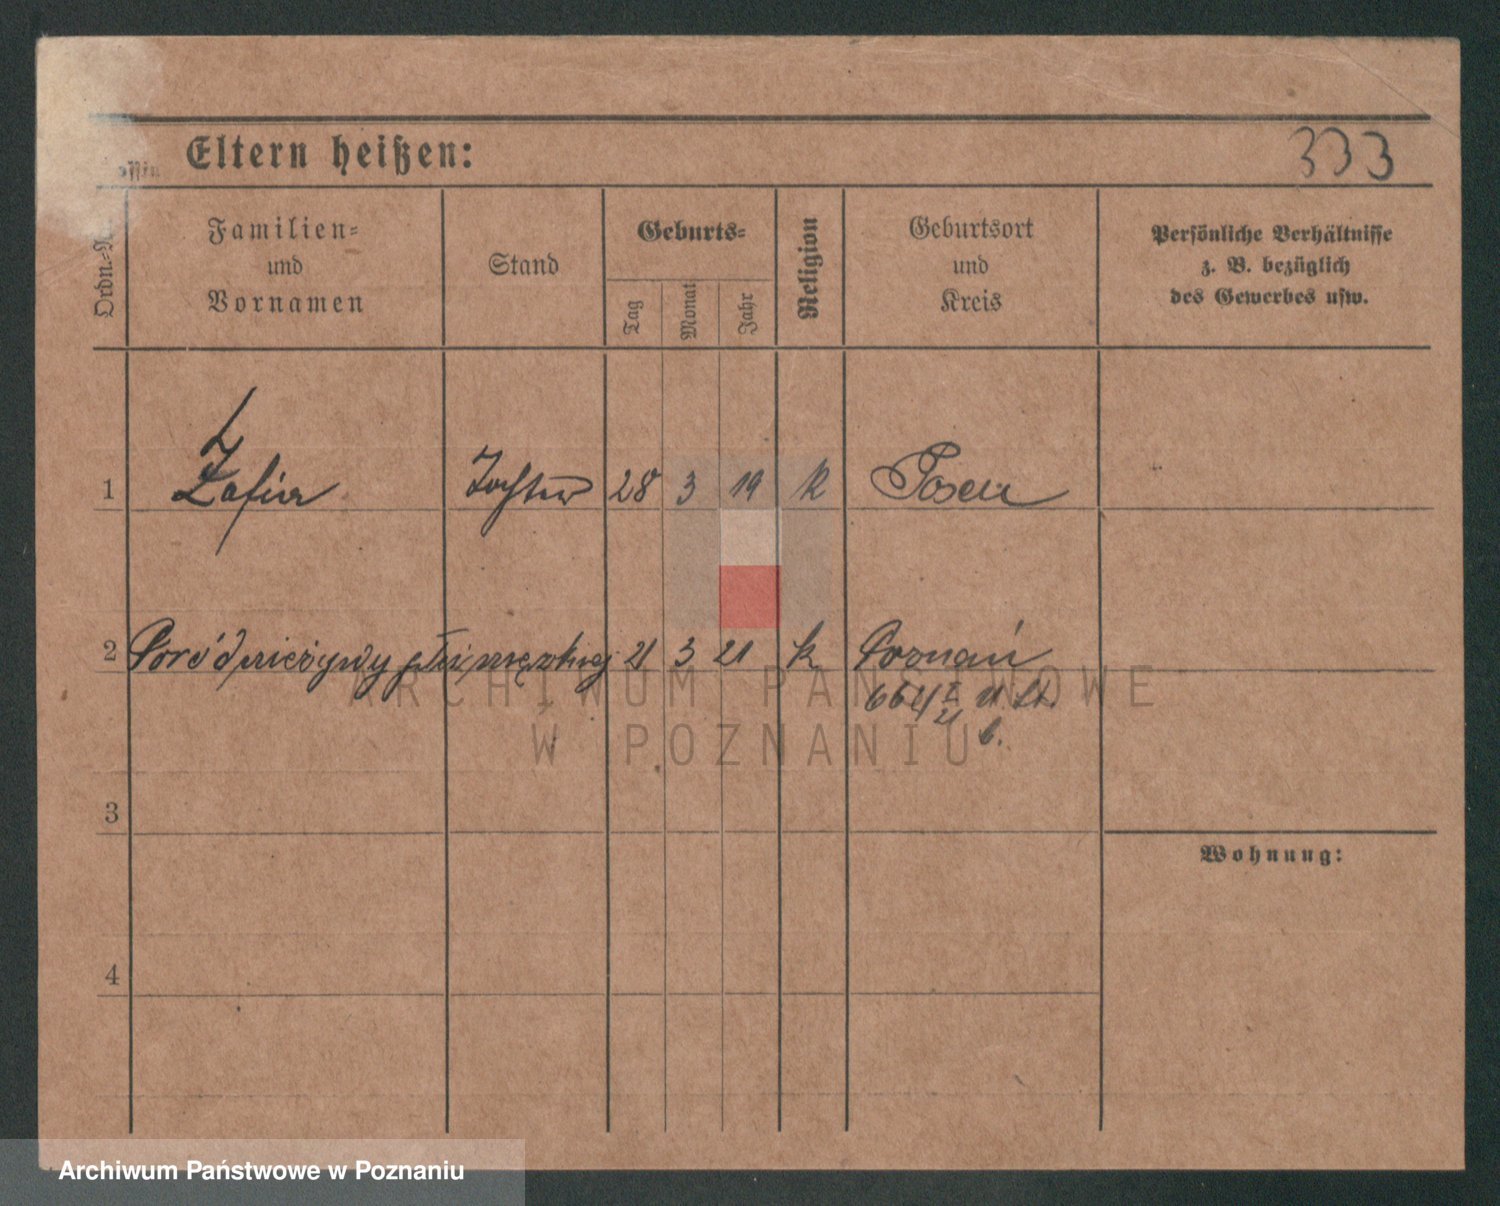 Eltern heißen:
333
Ordn.-N
Familien=
und
Vornamen
Stand
Geburts=
Tag
Monat
Jahr
Religion
Geburtsort
und
Kreis
Persönliche Verhältnisse
z. B. bezüglich
des Gewerbes usw.
1 Zofia Tochter 28 3 19 k Posen
2 Poród nieżywy płci męzkiej 21 3 21 k Poznań
664
3
4
Wohnung:
ARCHIWUM PAŃSTWOWE
W POZNANIU
Archiwum Państwowe w Poznaniu